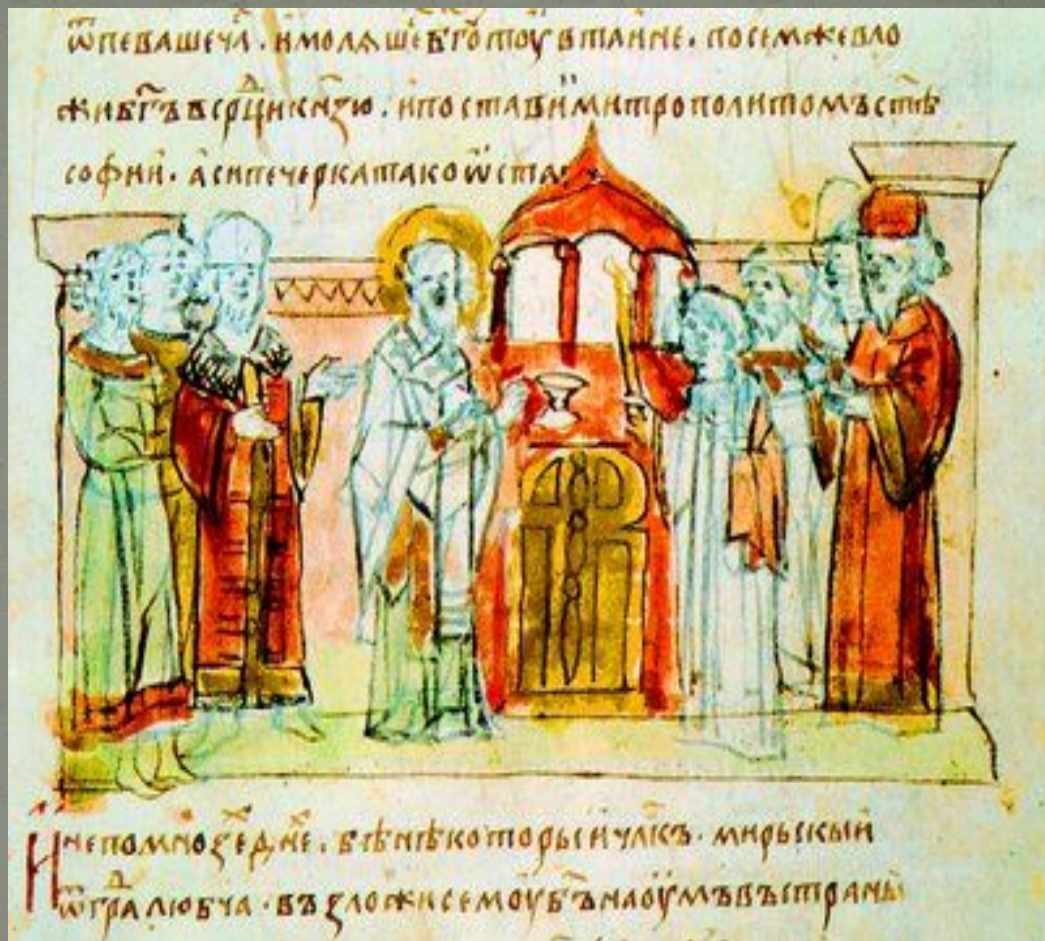 ѿпеваше чл҃. и молѧше бг҃ оу тоу в таине. посемже вло
жи бг҃ъ в срдⷣци кнѧзю. и постави и митрополитомъ ст҃ѣ
софии. а си печерка тако ѡста
И не по мнозѣ дн҃е. бѣ нѣкоторыи члк҃ъ. мирьскыи
ѿ граⷣ любча. възложи семоу бъ҃ на оумъ въ страны